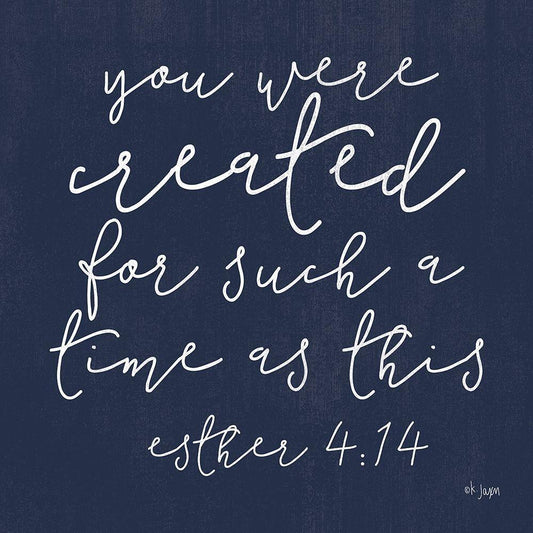 you were
created
for such a
time as this
esther 4:14
©k jaxn